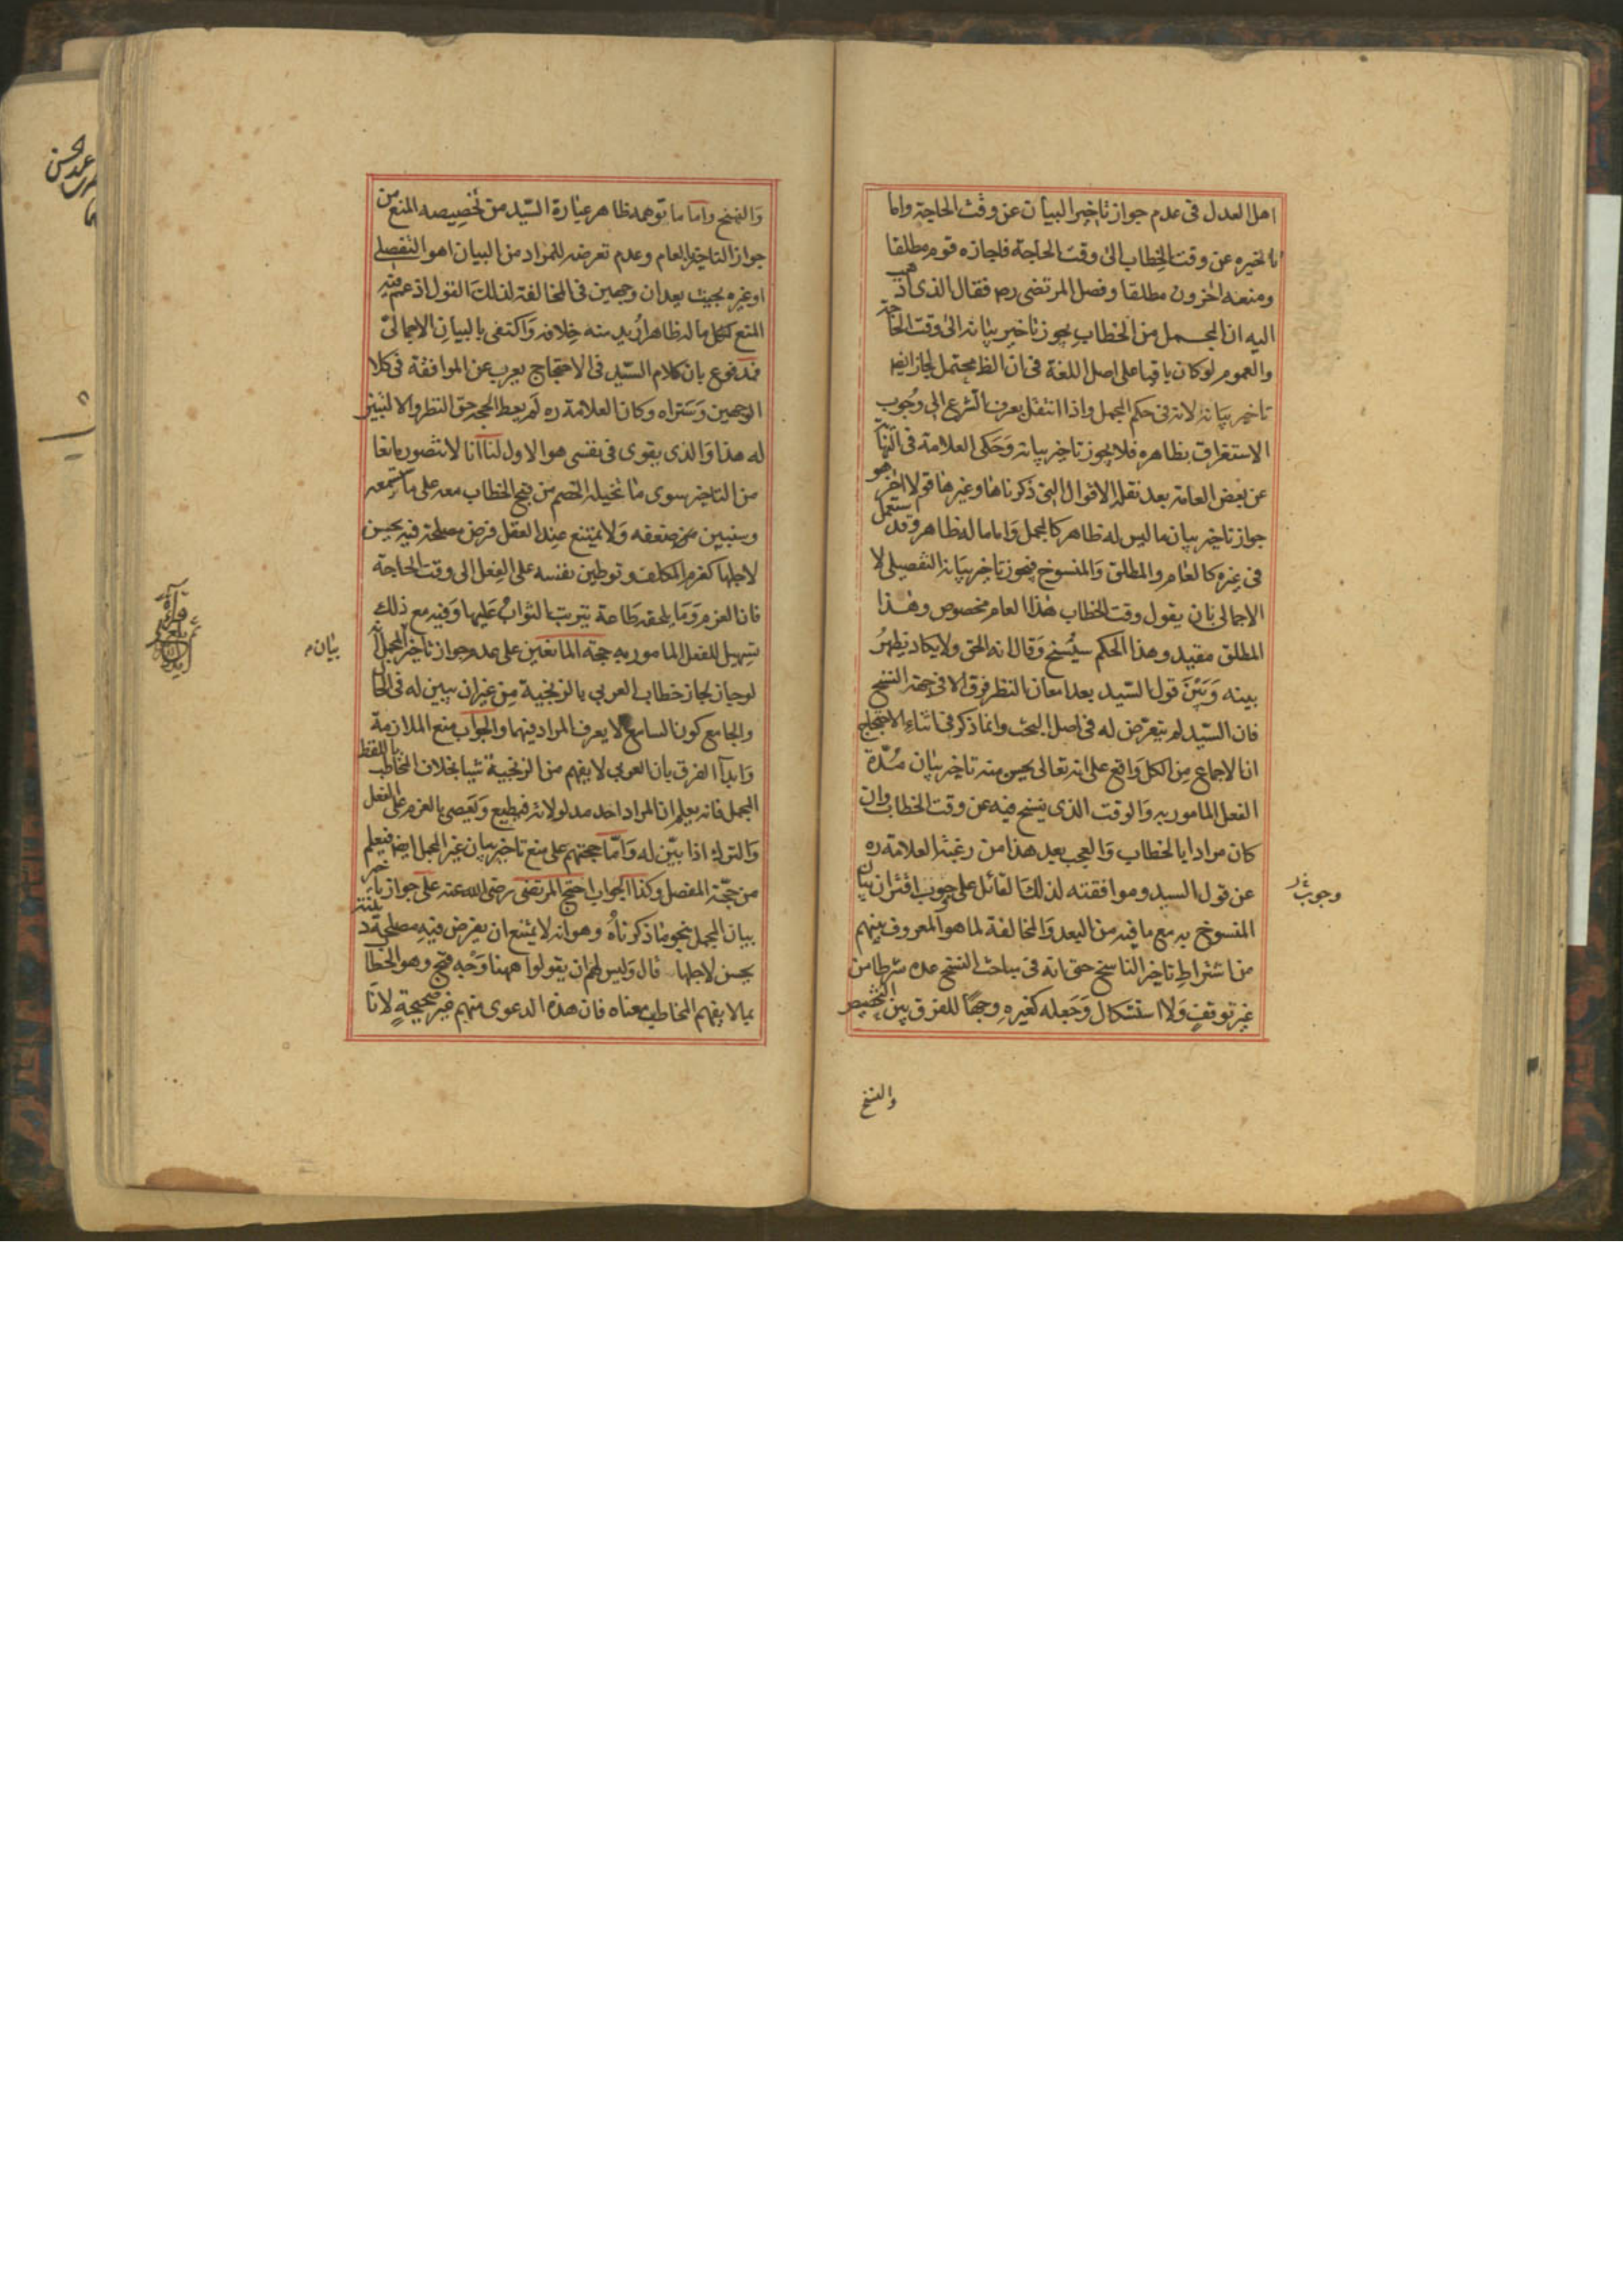 اهل العدل فى عدم جواز تاخير البيان عن وقت الحاجة واما
تاخيره عن وقت الخطاب الى وقت الحاجة فاجازه قوم مطلقا
ومنعه اخرون مطلقا وفصل المرتضى ره فقال الذى اذهب
اليه ان المجمل من الخطاب يجوز تاخير بيانه الى وقت الحاجة
والعموم لو كان باقيا على اصل اللغة فى ان الظ محتمل لجاز ايضا
تاخير بيانه لانه فى حكم المجمل واذا انتقل بعرف الشرع الى وجوب
الاستغراق بظاهره فلا يجوز تاخير بيانه وحكى العلامة فى النهاية
عن بعض العامة بعد نقله الاقوال التى ذكرناها وغيرها قولا اخر هو
جواز تاخير بيان ما ليس له ظاهر كالمجمل واما ما له ظاهر وقد استعمل
فى غيره كالعام والمطلق والمنسوخ فيجوز تاخير بيانه التفصيلى لا
الاجمالى بان يقول وقت الخطاب هذا العام مخصوص وهذا
المطلق مقيد وهذا الحكم سينسخ وقال انه الحق ولا يكاد يظهر
بينه وبين قول السيد بعد امعان النظر فرق الا فى جهة النسخ
فان السيد لم يتعرض له فى اصل البحث وانما ذكر فى اثناء الاحتجاج
ان الاجماع من الكل واقع على انه تعالى يحسن منه تاخير بيان مدة
الفعل المامور به والوقت الذى ينسخ فيه عن وقت الخطاب وان
كان مرادا بالخطاب والعجب بعد هذا من رغبة العلامة ره
عن قول السيد وموافقته لذلك القائل على وجوب اقتران بيان
المنسوخ به مع ما فيه من البعد والمخالفة لما هو المعروف بينهم
من اشتراط تاخير الناسخ حتى انه فى مباحث النسخ عده شرطا من
غير توقف ولا استشكال وجعله كغيره وجها للفرق بين التخصيص
وجوب
والنسخ
والنسخ واما ما توهمه ظاهر عبارة السيد من تخصيصه المنع من
جواز التاخير بالعام وعدم تعرضه للمراد من البيان اهو التفصيلى
او غيره بحيث يعدان وجهين فى المخالفة لذلك القول اذ عمم فيه
المنع لكل ما له ظاهر اريد منه خلافه واكتفى بالبيان الاجمالى
فمدفوع بان كلام السيد فى الاحتجاج يعرب عن الموافقة فى كلا
الوجهين وستراه وكان العلامة ره لم يعط الحجة حق النظر والا لتبين
له هذا والذى يقوى فى نفسى هو الاول لنا انا لا نتصور مانعا
من التاخير سوى ما تخيله الخصم من قبح الخطاب معه على ما ستسمعه
وسنبين ضعفه ولا يمتنع عند العقل فرض مصلحة فيه يحسن
لاجلها كعزم المكلف وتوطين نفسه على الفعل الى وقت الحاجة
فان العزم وما يلحقه طاعة يترتب الثواب عليها وفيه مع ذلك
تسهيل للفعل المامور به حجة المانعين على عدم جواز تاخير المجمل انه
لو جاز لجاز خطاب العربى بالزنجية من غير ان يبين له فى الحال
والجامع كون السامع لا يعرف المراد فيهما والجواب منع الملازمة
وابداء الفرق بان العربى لا يفهم من الزنجية شيئا بخلاف المخاطب باللفظ
المجمل فانه يعلم ان المراد احد مدلولاته فيطيع ويعصى بالعزم على الفعل
والترك اذا بين له واما حجتهم على منع تاخير بيان غير المجمل ايضا فيعلم
من حجة المفصل وكذا الجواب احتج المرتضى رضى الله عنه على جواز تاخير
بيان المجمل بنحو ما ذكرناه وهو انه لا يمتنع ان يفرض فيه مصلحة دينية
يحسن لاجلها قال وليس لهم ان يقولوا ههنا وجه قبح وهو الخطاب
بما لا يفهم المخاطب معناه فان هذه الدعوى منهم غير صحيحة لانا
بيان م